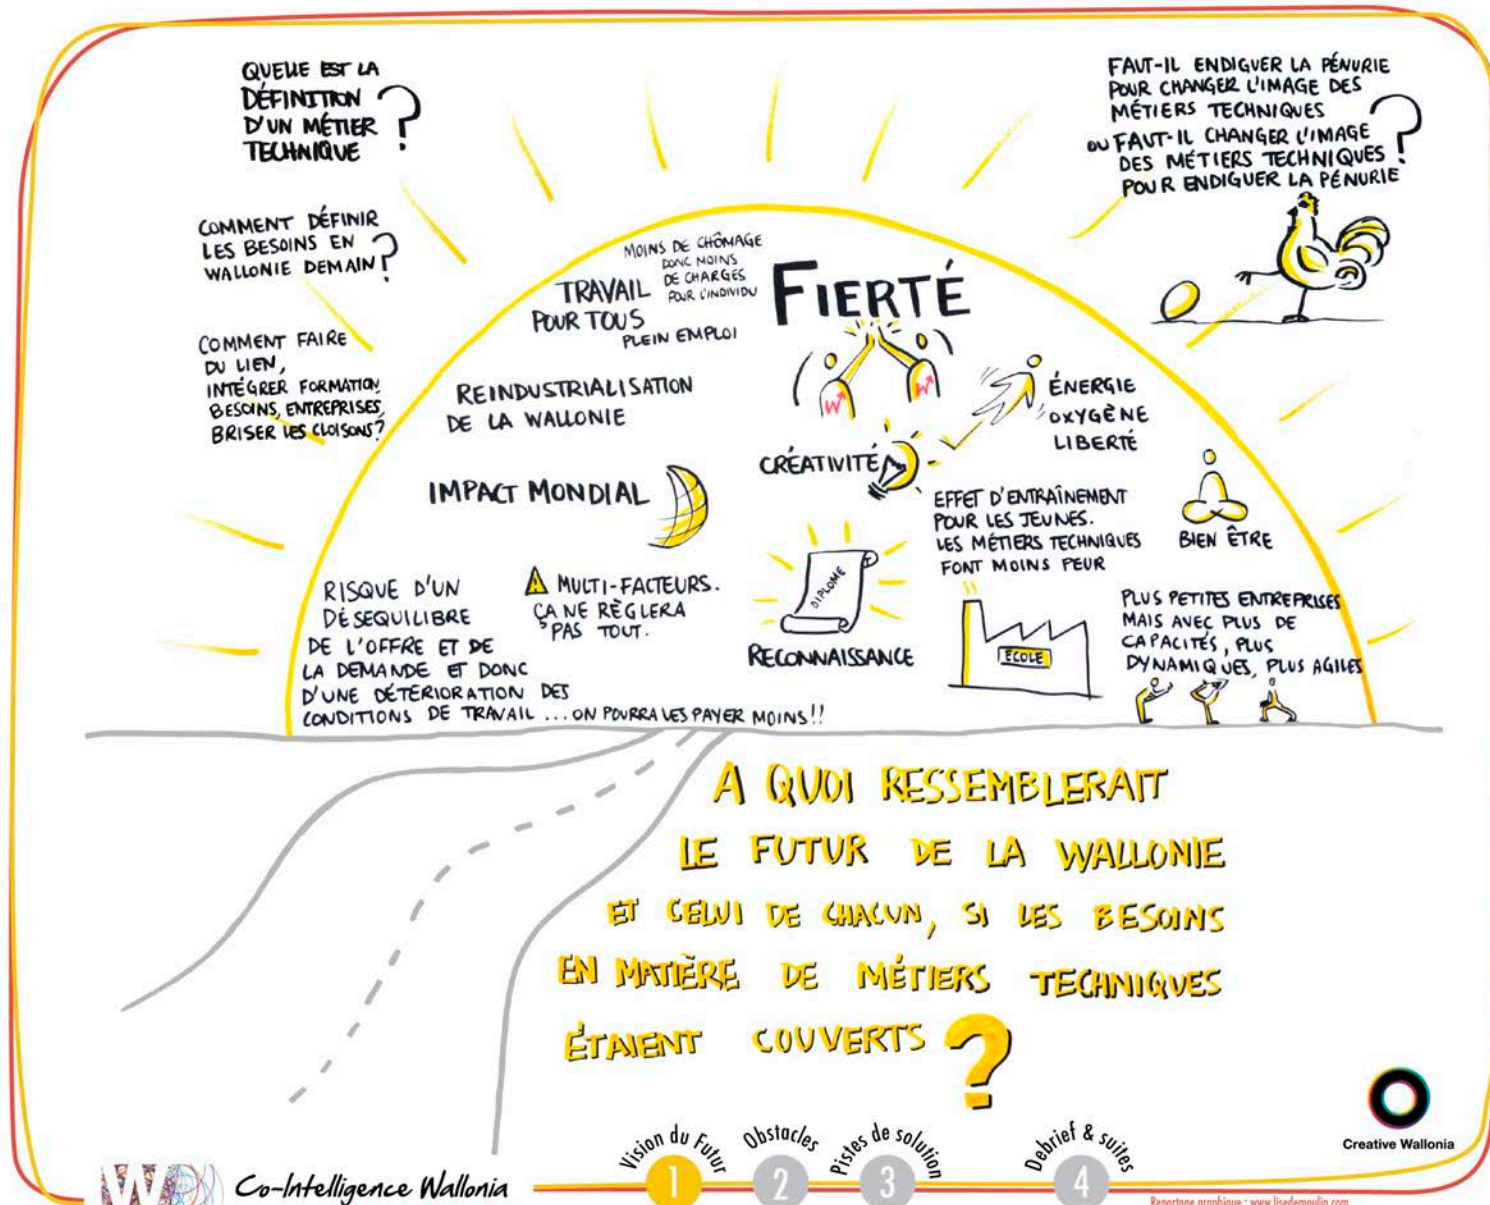 QUELLE EST LA
DÉFINITION
D'UN MÉTIER
TECHNIQUE ?
COMMENT DÉFINIR
LES BESOINS EN
WALLONIE DEMAIN ?
COMMENT FAIRE
DU LIEN,
INTÉGRER FORMATION
BESOINS, ENTREPRISES,
BRISER LES CLOISONS?
FAUT-IL ENDIGUER LA PÉNURIE
POUR CHANGER L'IMAGE DES
MÉTIERS TECHNIQUES
OU FAUT-IL CHANGER L'IMAGE
DES MÉTIERS TECHNIQUES ?
POUR ENDIGUER LA PÉNURIE
MOINS DE CHÔMAGE
DONC MOINS
DE CHARGES
POUR L'INDIVIDU
TRAVAIL
POUR TOUS
PLEIN EMPLOI
FIERTÉ
W W
REINDUSTRIALISATION
DE LA WALLONIE
ÉNERGIE
OXYGÈNE
LIBERTÉ
CRÉATIVITÉ
IMPACT MONDIAL
EFFET D'ENTRAÎNEMENT
POUR LES JEUNES.
LES MÉTIERS TECHNIQUES
FONT MOINS PEUR
BIEN ÊTRE
RISQUE D'UN
DÉSEQUILIBRE
DE L'OFFRE ET DE
LA DEMANDE ET DONC
D'UNE DÉTÉRIORATION DES
CONDITIONS DE TRAVAIL ... ON POURRA LES PAYER MOINS!!
MULTI-FACTEURS.
ÇA NE RÈGLERA
PAS TOUT.
DIPLOME
RECONNAISSANCE
ÉCOLE
PLUS PETITES ENTREPRISES
MAIS AVEC PLUS DE
CAPACITÉS, PLUS
DYNAMIQUES, PLUS AGILES
A QUOI RESSEMBLERAIT
LE FUTUR DE LA WALLONIE
ET CELUI DE CHACUN, SI LES BESOINS
EN MATIÈRE DE MÉTIERS TECHNIQUES
ÉTAIENT COUVERTS ?
Creative Wallonia
W
Co-Intelligence Wallonia
Vision du Futur
1
Obstacles
2
Pistes de solution
3
Debrief & suites
4
Reportage graphique : www.lisedemoulin.com